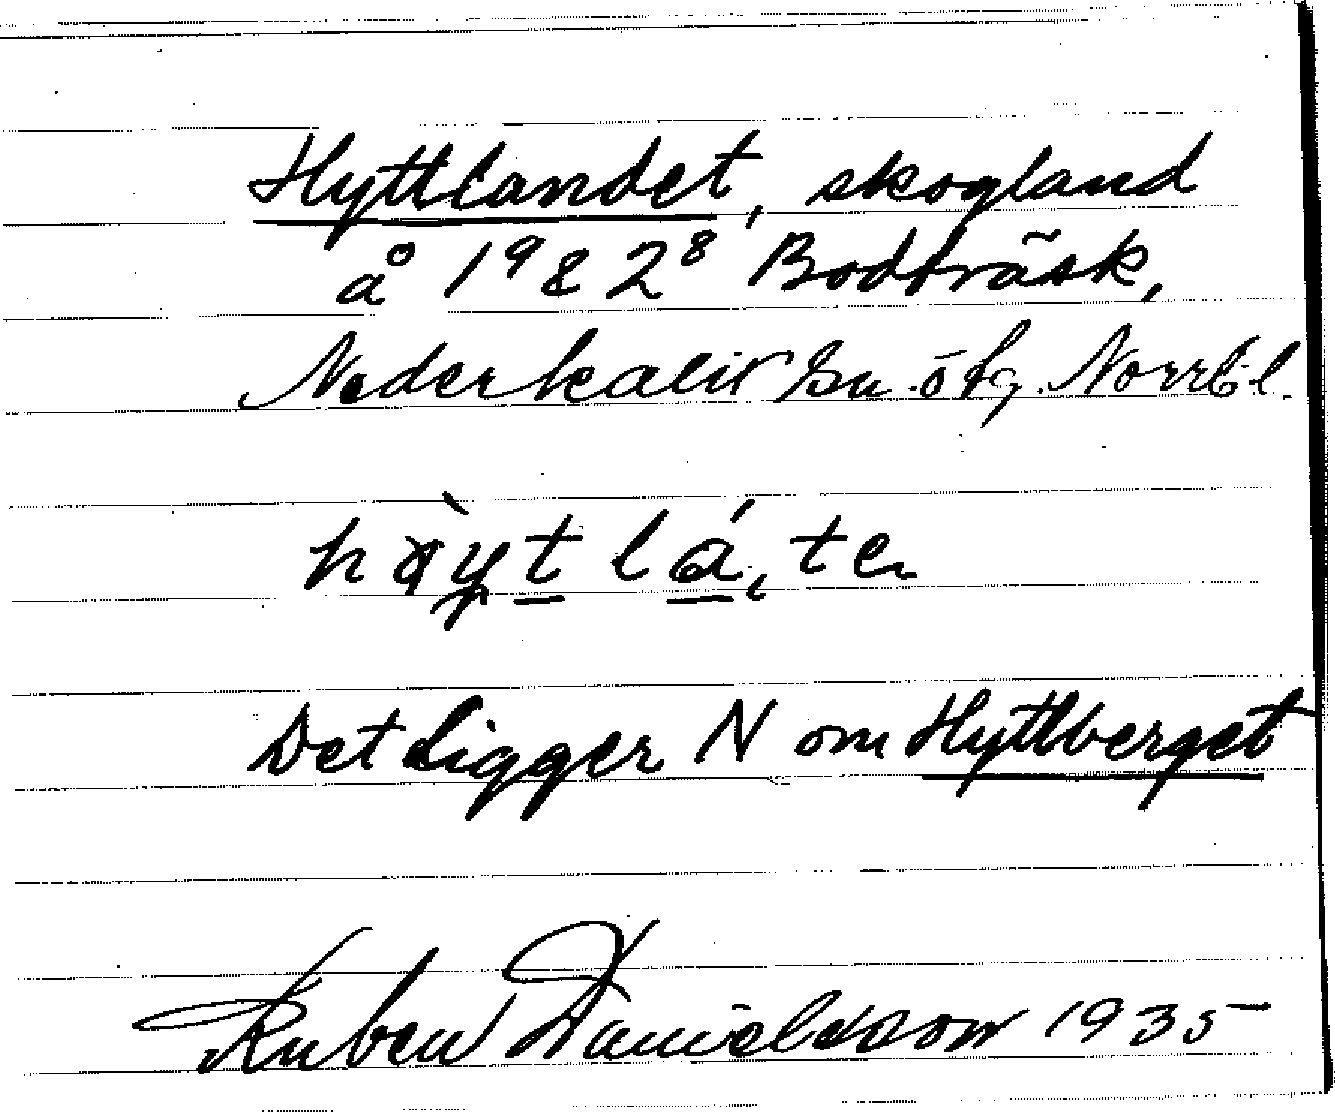 Hyttlandet, skogland
å 1⁹ & 2⁸ Bodträsk,
Nederkalix sn. ö fg. Norrb. l.
hàyt lá, te
Det ligger N om Hyttberget
Ruben Danielsson 1935